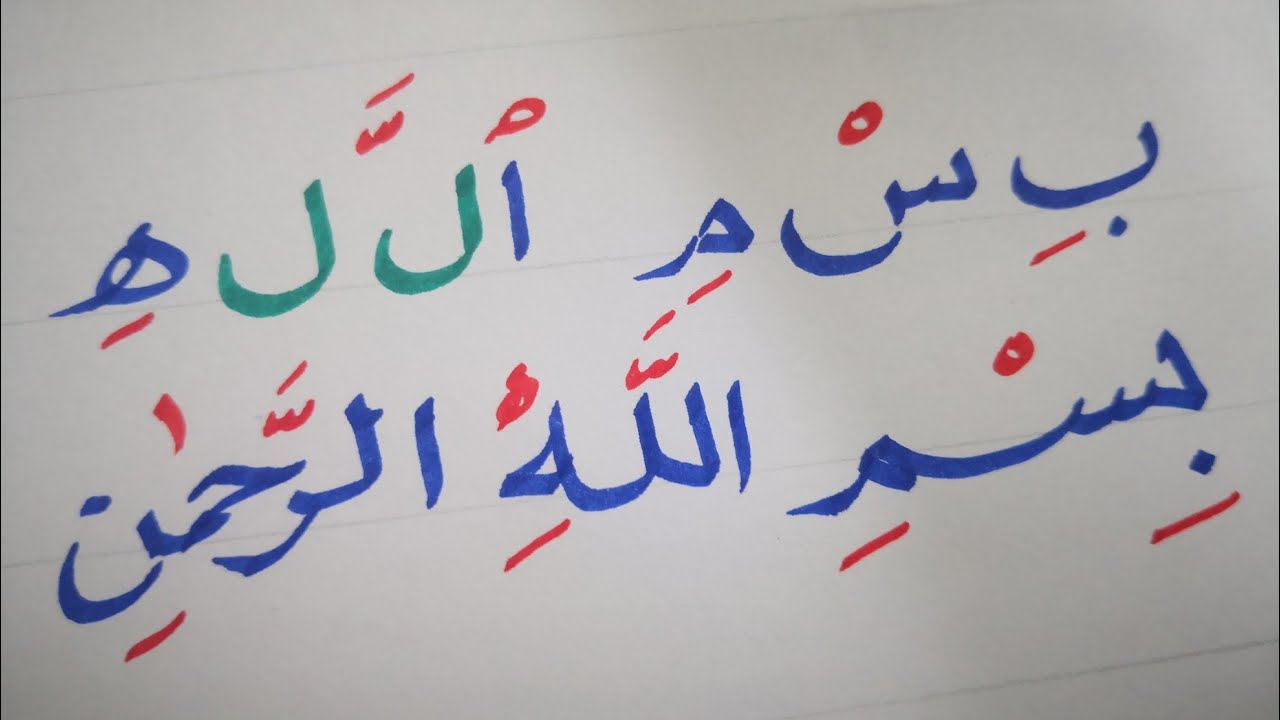 بِ سْ مِ ٱ ل لَّ هِ
بِسْمِ اللَّهِ الرَّحْمٰنِ